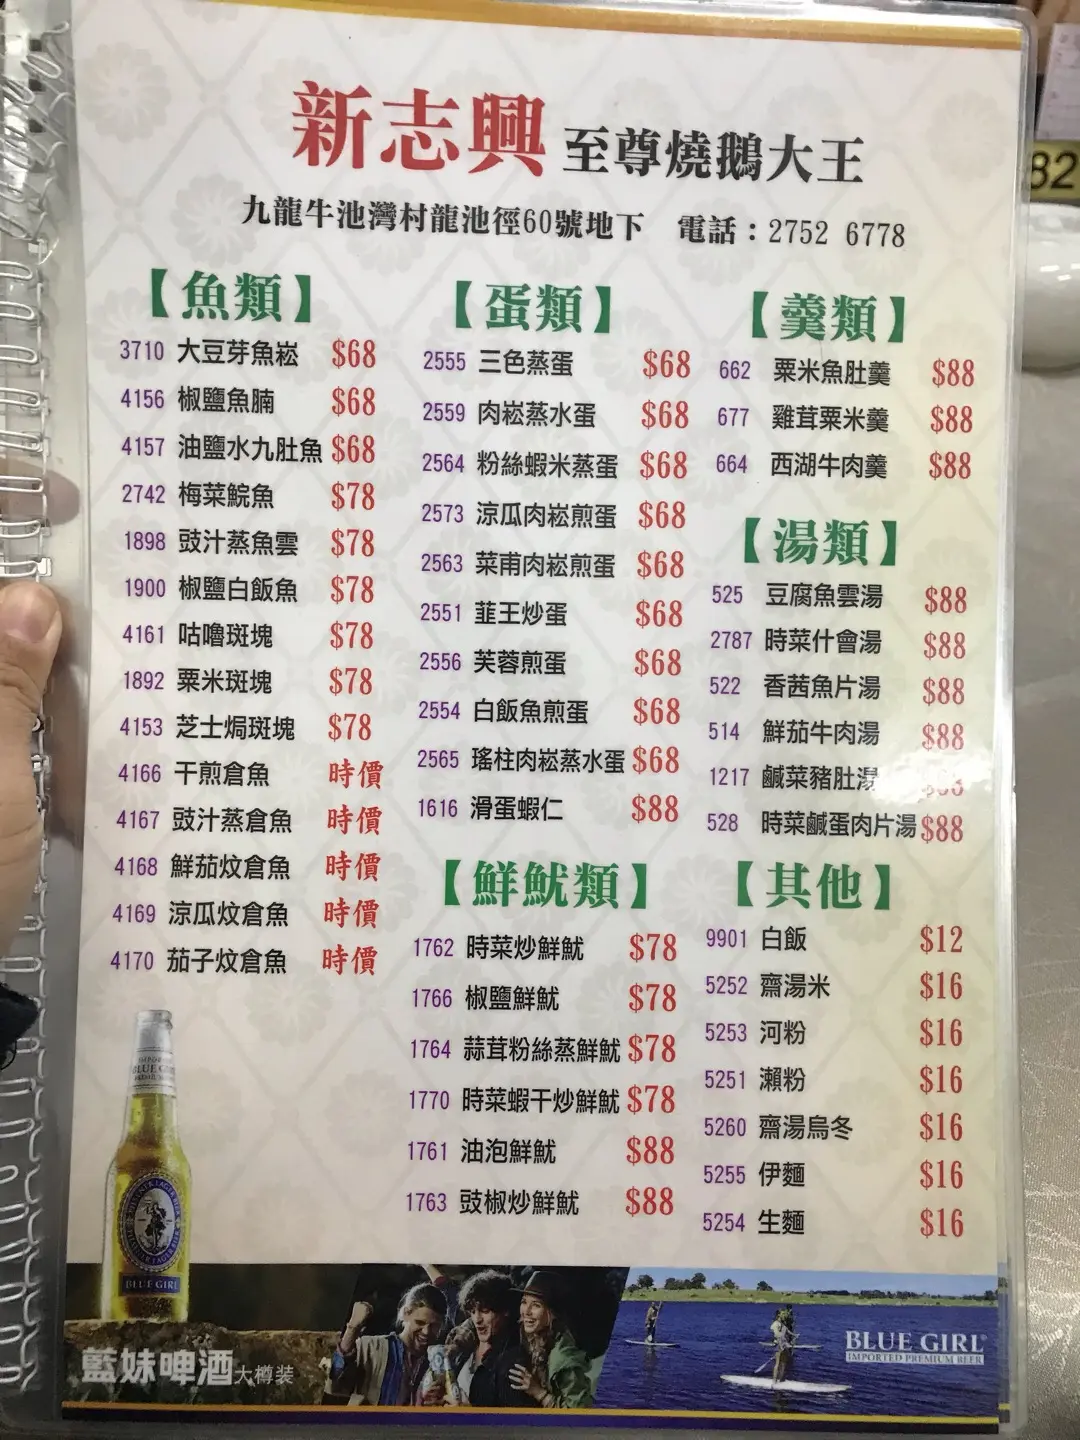 新志興 至尊燒鵝大王
九龍牛池灣村龍池徑60號地下 電話：2752 6778
【魚類】
3710 大豆芽魚崧 $68
4156 椒鹽魚腩 $68
4157 油鹽水九肚魚 $68
2742 梅菜鯇魚 $78
1898 豉汁蒸魚雲 $78
1900 椒鹽白飯魚 $78
4161 咕嚕斑塊 $78
1892 粟米斑塊 $78
4153 芝士焗斑塊 $78
4166 干煎倉魚 時價
4167 豉汁蒸倉魚 時價
4168 鮮茄炆倉魚 時價
4169 涼瓜炆倉魚 時價
4170 茄子炆倉魚 時價
【蛋類】
2555 三色蒸蛋 $68
2559 肉崧蒸水蛋 $68
2564 粉絲蝦米蒸蛋 $68
2573 涼瓜肉崧煎蛋 $68
2563 菜甫肉崧煎蛋 $68
2551 韮王炒蛋 $68
2556 芙蓉煎蛋 $68
2554 白飯魚煎蛋 $68
2565 瑤柱肉崧蒸水蛋 $68
1616 滑蛋蝦仁 $88
【鮮魷類】
1762 時菜炒鮮魷 $78
1766 椒鹽鮮魷 $78
1764 蒜茸粉絲蒸鮮魷 $78
1770 時菜蝦干炒鮮魷 $78
1761 油泡鮮魷 $88
1763 豉椒炒鮮魷 $88
【羹類】
662 粟米魚肚羹 $88
677 雞茸粟米羹 $88
664 西湖牛肉羹 $88
【湯類】
525 豆腐魚雲湯 $88
2787 時菜什會湯 $88
522 香茜魚片湯 $88
514 鮮茄牛肉湯 $88
1217 鹹菜豬肚湯
528 時菜鹹蛋肉片湯 $88
【其他】
9901 白飯 $12
5252 齋湯米 $16
5253 河粉 $16
5251 瀨粉 $16
5260 齋湯烏冬 $16
5255 伊麵 $16
5254 生麵 $16
BLUE GIRL
藍妹啤酒大樽装
BLUE GIRL
IMPORTED PREMIUM BEER
82